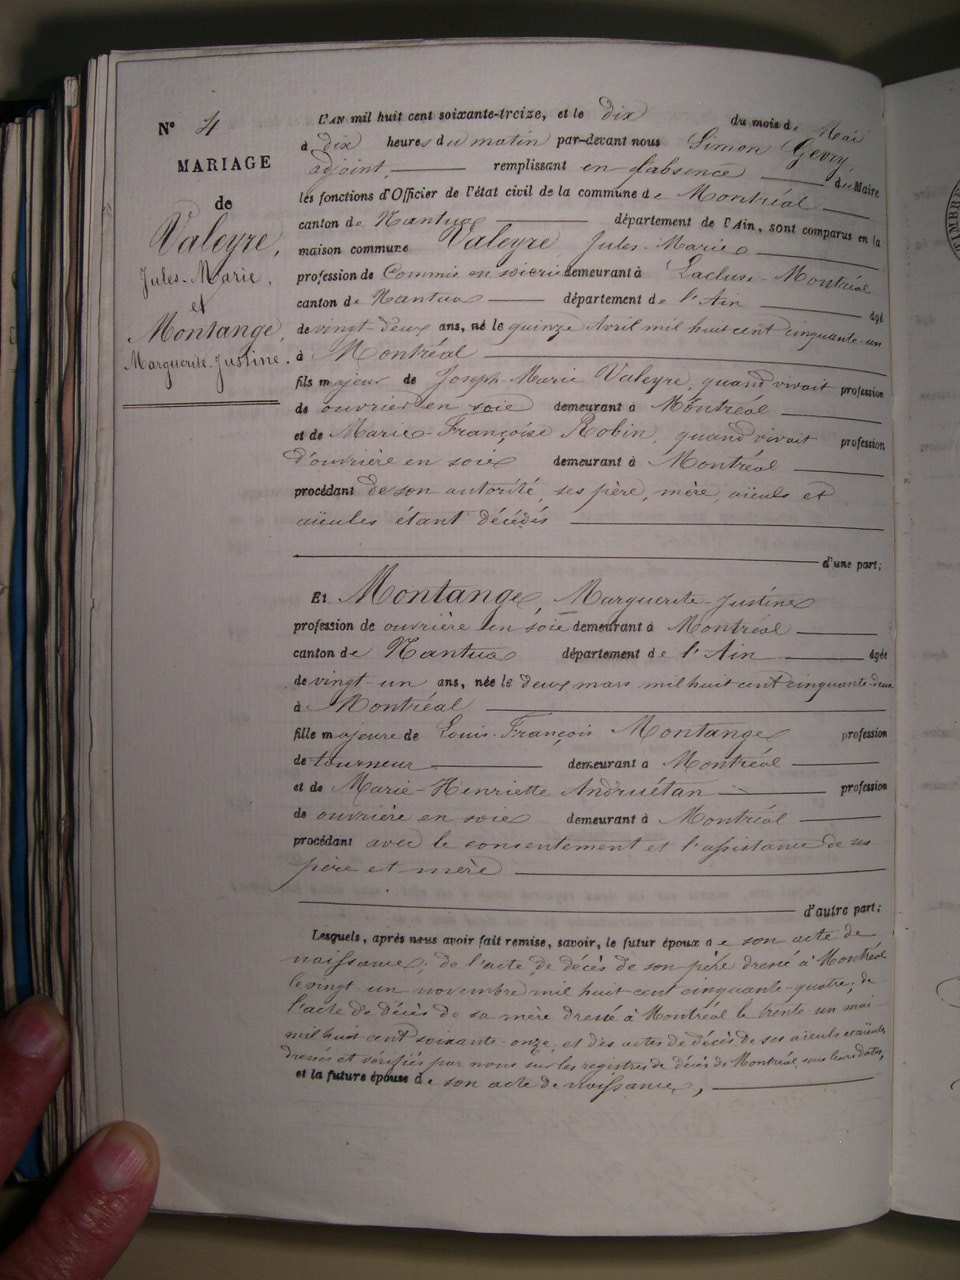 N° 4
MARIAGE
de
Valeyre,
Jules-Marie,
et
Montange,
Marguerite-Justine.
L'AN mil huit cent soixante-treize, et le dix du mois de Mai
à dix heures du matin par-devant nous Simon Gevry
adjoint, remplissant en l'absence du Maire
les fonctions d'Officier de l'état civil de la commune de Montréal
canton de Nantua département de l'Ain, sont comparus en la
maison commune Valeyre Jules-Marie
profession de Commis en soierie demeurant à Lacluse-Montréal
canton de Nantua département de l'Ain âgé
de vingt-deux ans, né le quinze Avril mil huit cent cinquante-un
à Montréal
fils majeur de Joseph-Marie Valeyre, quand vivait profession
de ouvrier en soie demeurant à Montréal
et de Marie-Françoise Robin, quand vivait profession
d'ouvrière en soie demeurant à Montréal
procédant de son autorité, ses père, mère, aïeuls et
aïeules étant décédés
d'une part;
Et Montange, Marguerite-Justine
profession de ouvrière en soie demeurant à Montréal
canton de Nantua département de l'Ain âgée
de vingt-un ans, née le deux mars mil huit cent cinquante-deux
à Montréal
fille majeure de Louis-François Montange profession
de tourneur demeurant à Montréal
et de Marie-Henriette Andruétan profession
de ouvrière en soie demeurant à Montréal
procédant avec le consentement et l'assistance de ses
père et mère
d'autre part;
Lesquels, après nous avoir fait remise, savoir, le futur époux de son acte de
naissance; de l'acte de décès de son père dressé à Montréal
le vingt un novembre mil huit cent cinquante-quatre; de
l'acte de décès de sa mère dressé à Montréal le trente un mai
mil huit cent soixante-onze, et des actes de décès de ses aïeuls et aïeules
dressés et vérifiés par nous sur les registres de décès de Montréal, sous leurs dates,
et la future épouse de son acte de naissance,